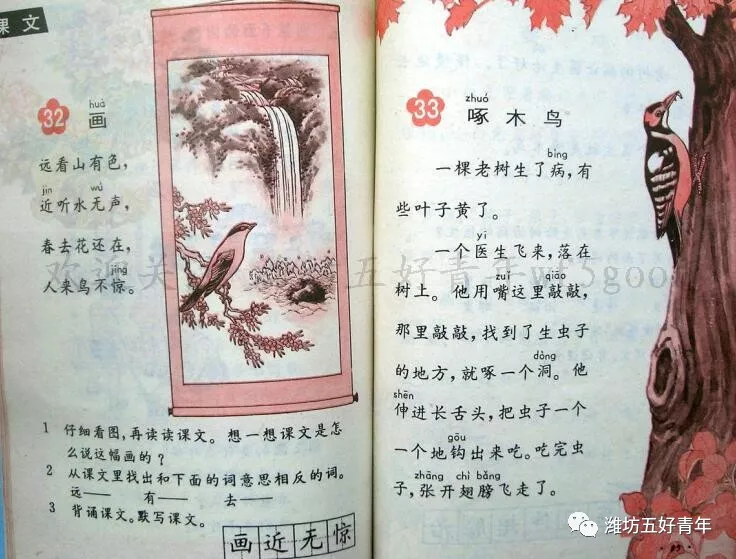 课文
32
huà
画
远看山有色，
jìn wú
近听水无声，
春去花还在，
jīng
人来鸟不惊。
1 仔细看图，再读读课文。想一想课文是怎
么说这幅画的？
2 从课文里找出和下面的词意思相反的词。
远—— 有—— 去——
3 背诵课文。默写课文。
画近无惊
33
zhuó
啄木鸟
bìng
一棵老树生了病，有
些叶子黄了。
yī
一个医生飞来，落在
zuǐ qiāo
树上。他用嘴这里敲敲，
那里敲敲，找到了生虫子
dòng
的地方，就啄一个洞。他
shēn
伸进长舌头，把虫子一个
gōu
一个地钩出来吃。吃完虫
zhāng chì bǎng
子，张开翅膀飞走了。
潍坊五好青年